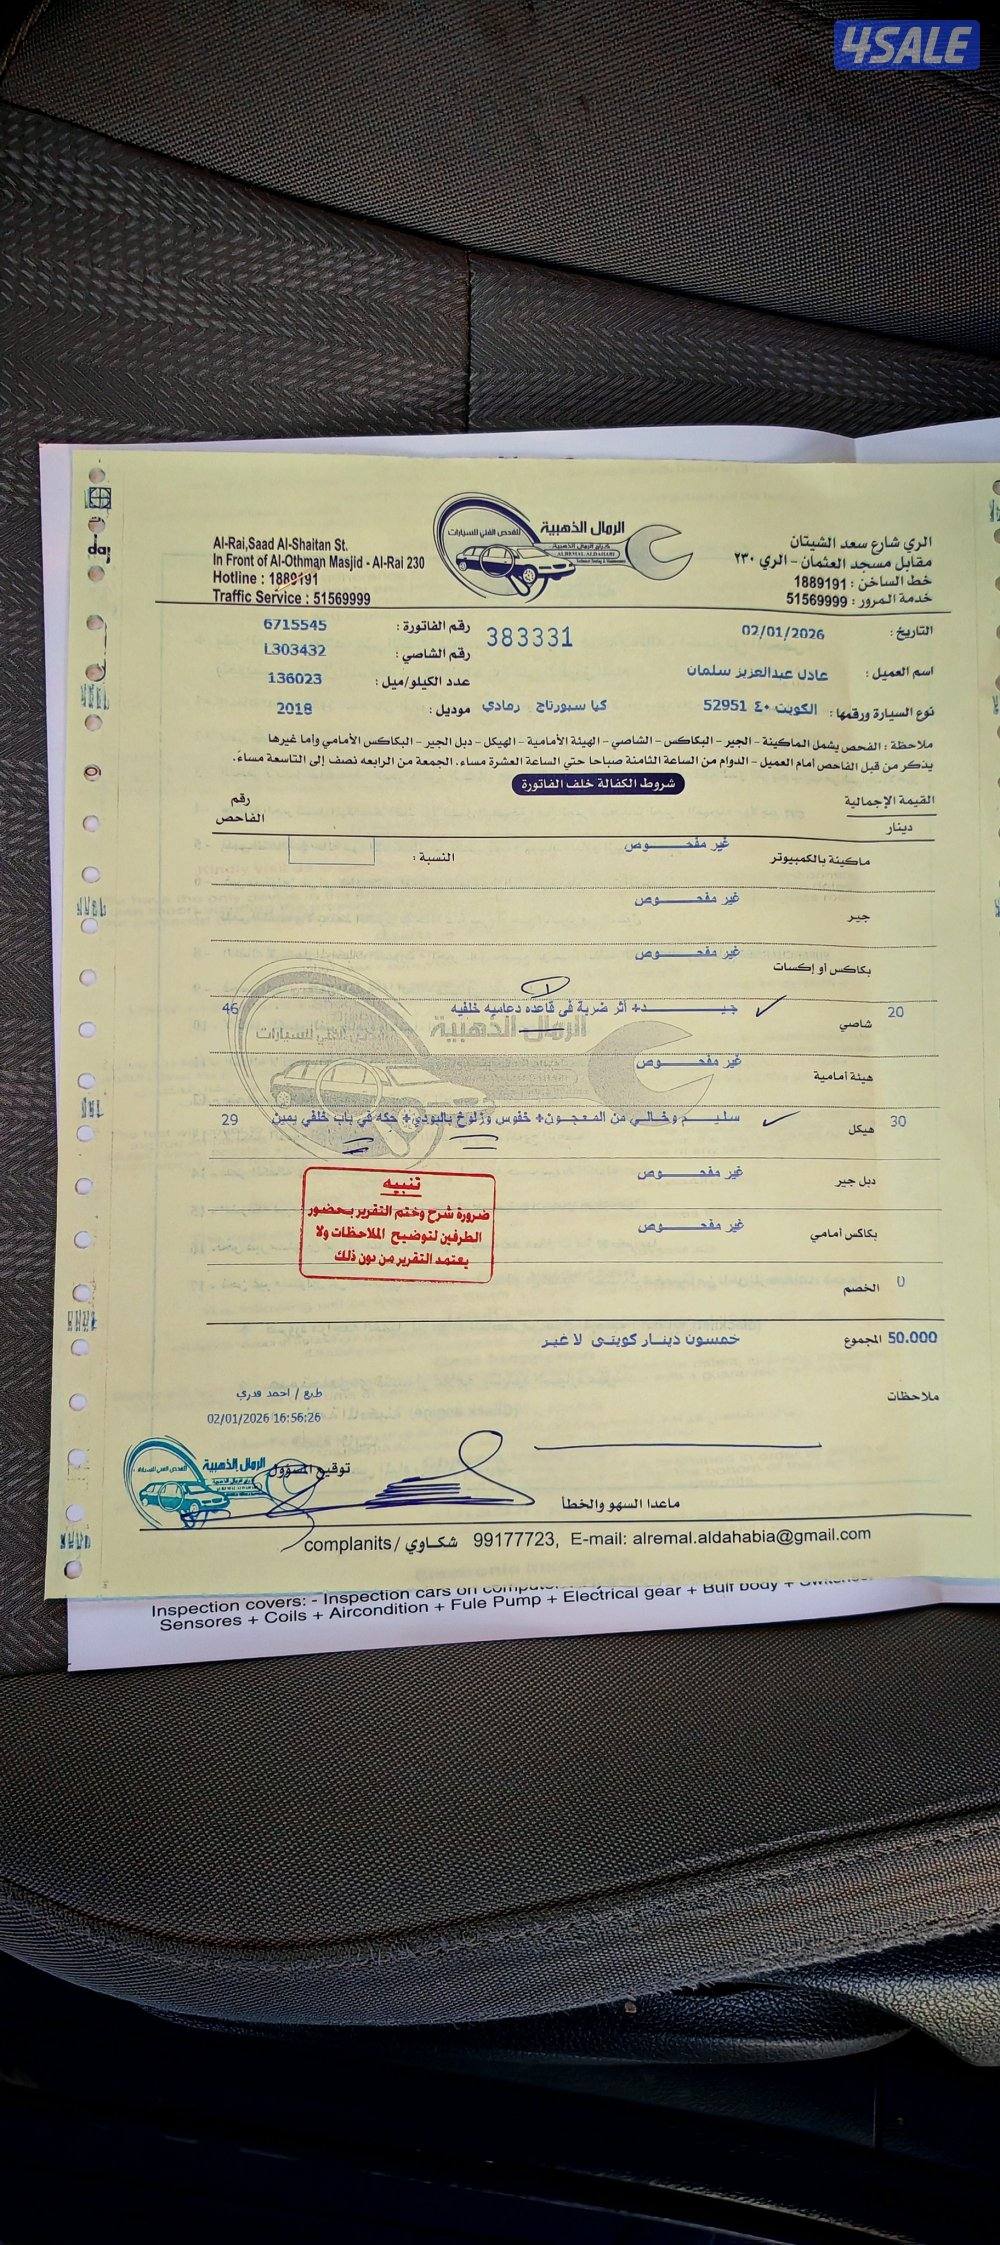 4SALE
الرمال الذهبية
للفحص الفني للسيارات
كراج الرمال الذهبية
ALREMAL ALDAHABI
Technical Testing & Maintenance
Al-Rai,Saad Al-Shaitan St.
In Front of Al-Othman Masjid - Al-Rai 230
Hotline : 1889191
Traffic Service : 51569999
الري شارع سعد الشيتان
مقابل مسجد العثمان - الري ٢٣٠
خط الساخن : 1889191
خدمة المرور : 51569999
التاريخ : 02/01/2026
383331
رقم الفاتورة : 6715545
رقم الشاصي : L303432
اسم العميل : عادل عبدالعزيز سلمان
عدد الكيلو/ميل : 136023
نوع السيارة ورقمها : الكويت ٤٠ 52951 كيا سبورتاج رمادي
موديل : 2018
ملاحظة : الفحص يشمل الماكينة - الجير - البكاكس - الشاصي - الهيئة الأمامية - الهيكل - دبل الجير - البكاكس الأمامي وأما غيرها
يذكر من قبل الفاحص أمام العميل - الدوام من الساعة الثامنة صباحا حتي الساعة العشرة مساء. الجمعة من الرابعه نصف إلى التاسعة مساء.
شروط الكفالة خلف الفاتورة
القيمة الإجمالية
دينار
رقم
الفاحص
ماكينة بالكمبيوتر غير مفحـــــوص النسبة :
جير غير مفحـــــوص
بكاكس أو إكسات غير مفحـــــوص
20 شاصي جيـــــــد+ أثر ضربة في قاعده دعاميه خلفيه 46
هيئة أمامية غير مفحـــــوص
30 هيكل سليـــم وخالـــي من المعجـــون+ خفوس وزلوخ بالبودي+ حكه في باب خلفي يمين 29
دبل جير غير مفحـــــوص
بكاكس أمامي غير مفحـــــوص
الخصم 0
50.000 المجموع خمسون دينـــار كويتـــي لا غير
تنبيه
ضرورة شرح وختم التقرير بحضور
الطرفين لتوضيح الملاحظات ولا
يعتمد التقرير من دون ذلك
ملاحظات
طبع / احمد قدري
02/01/2026 16:56:26
توقيع المسؤول
الرمال الذهبية
للفحص الفني للسيارات
ماعدا السهو والخطأ
complanits / شكـاوي 99177723, E-mail: alremal.aldahabia@gmail.com
Inspection covers: - Inspection cars on
Sensores + Coils + Aircondition + Fule Pump + Electrical gear + Bulf body +